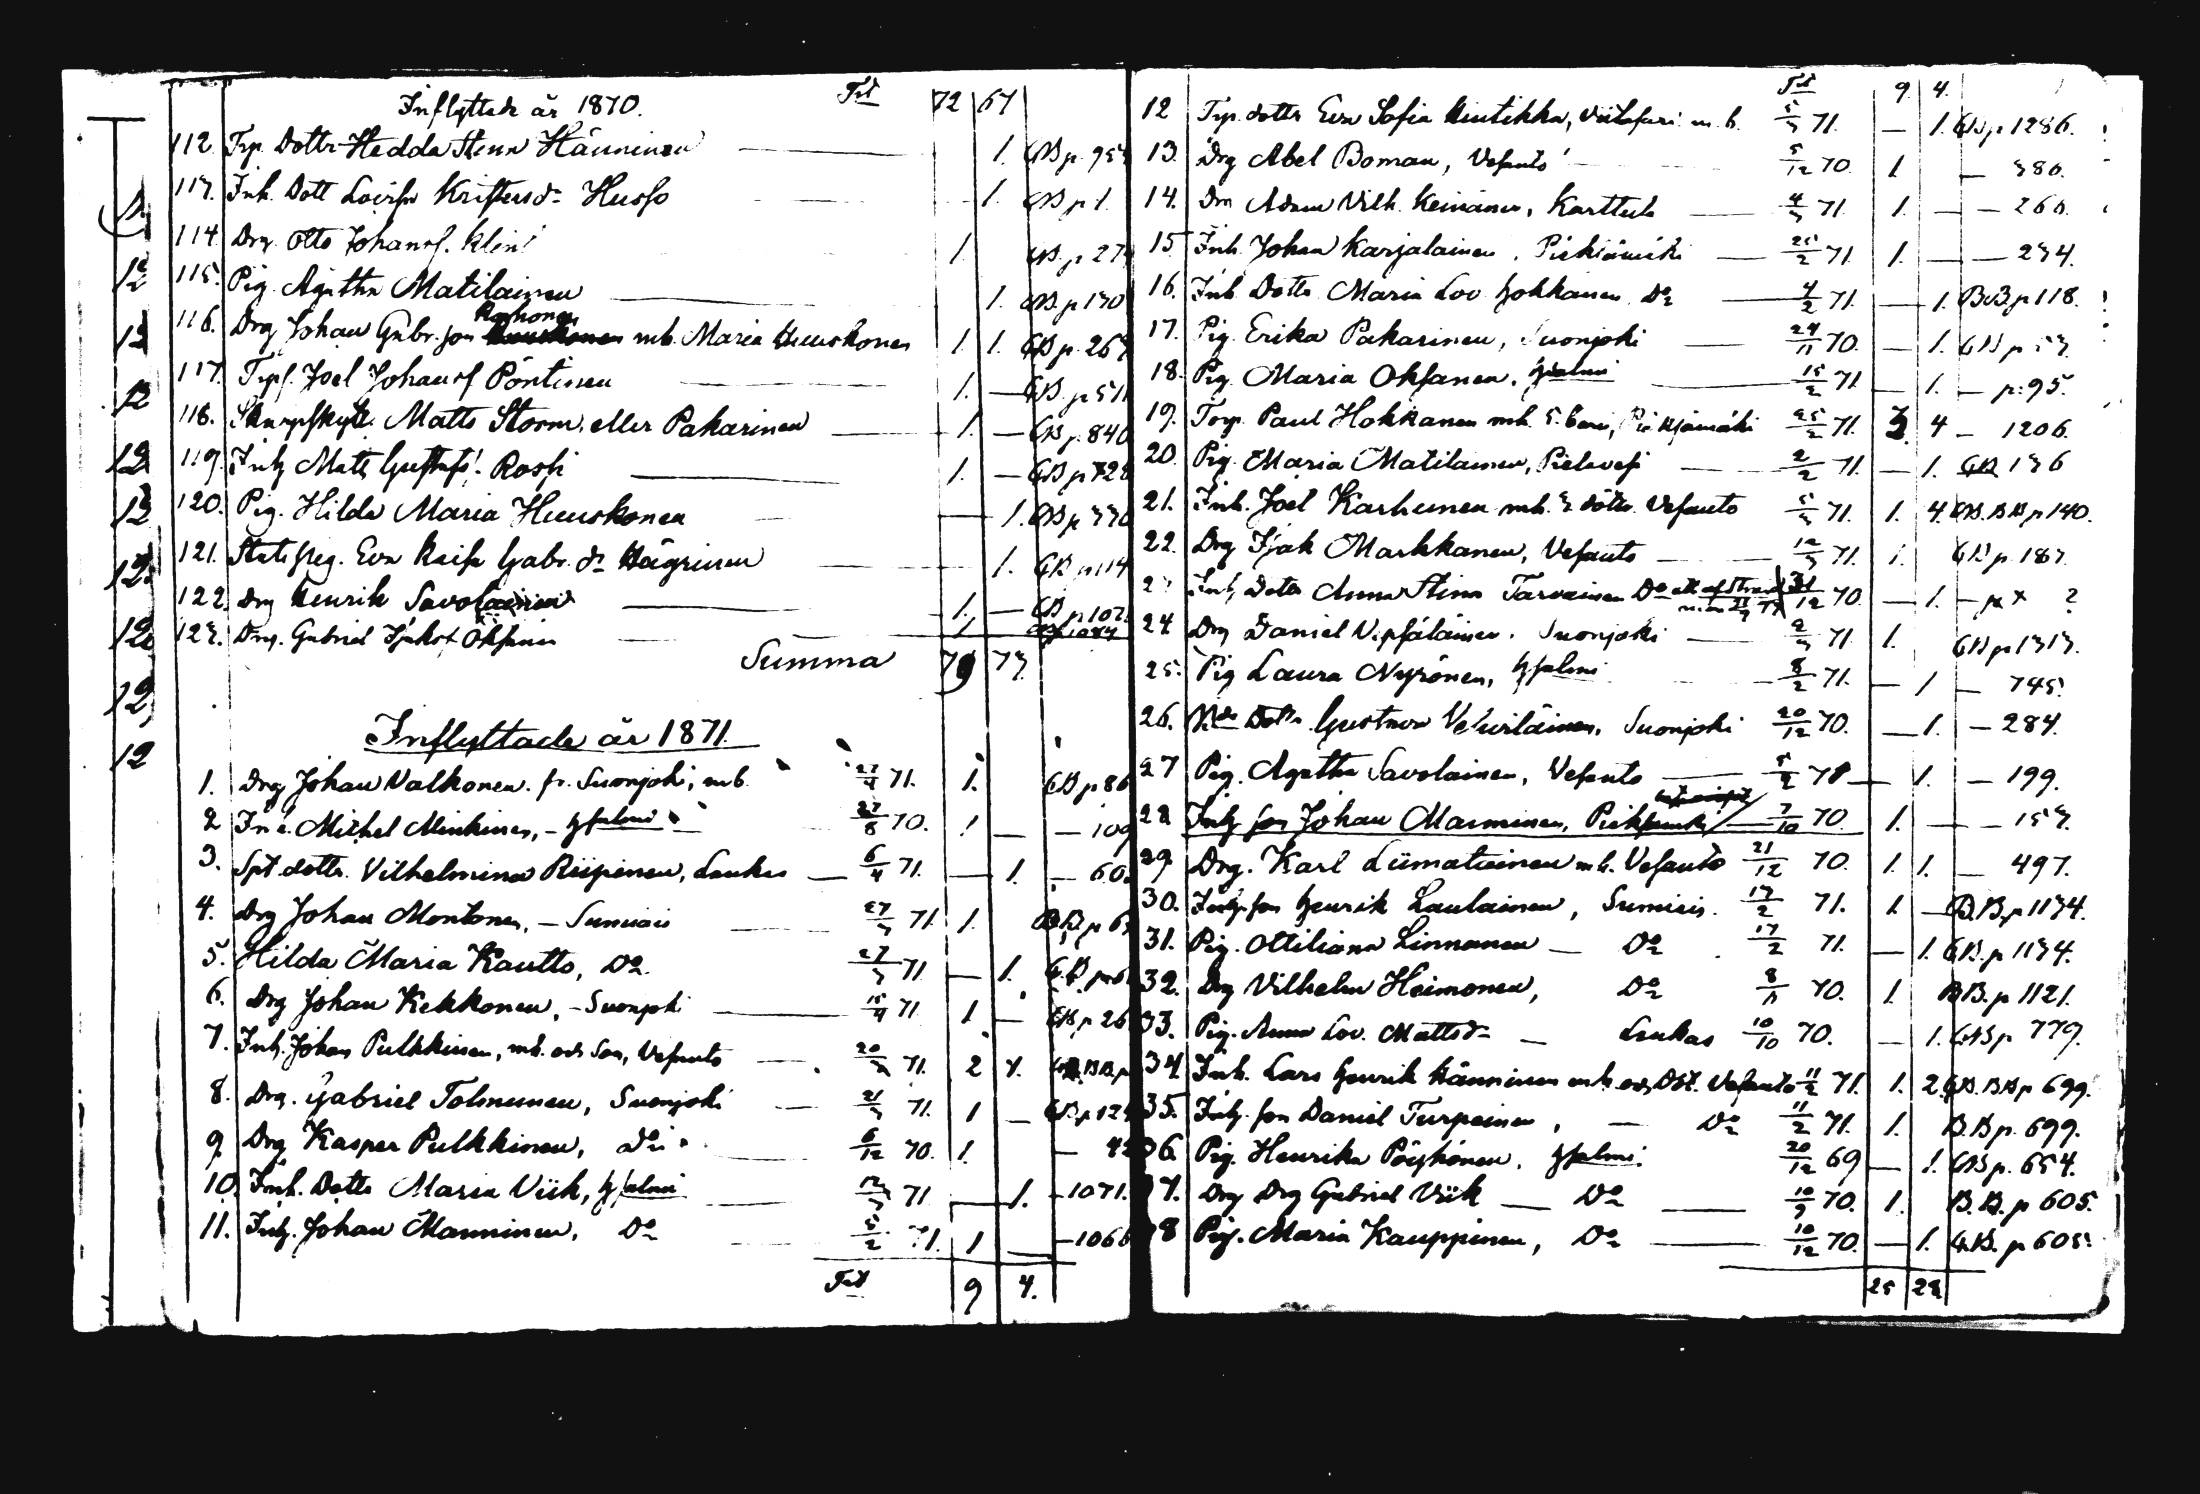 Inflyttade år 1870. Trt 72 67
112. Trp. Dottr Hedda Stina Hänninen — 1. GB p 957
113. Inh. Dott Lovisa Kristersdr Husso — 1. GB p 1.
114 Drg. Otto Johansf. Klint 1 GB. p 27
115. Pig. Agatha Matilainen — 1. GB p 170
116. Drg Johan Gabr. son Korhonen mh. Maria Huuskonen 1. 1. GB p. 267
117. Trpf. Joel Johansf Pöntinen — 1. — GB. p 511
118. Skarpskytt. Matts Storm, eller Pakarinen — 1. — GB p. 840
119. Inhg Matts Gustafs. Rossi — 1. — GB p 728
120. Pig. Hilda Maria Huuskonen — 1. GB p 770
121. Statspig. Eva Kaisa Gabr. dr Hägrinen — 1. GB. p 114
122. Drg Henrik Savolainen — 1. — GB p 102
123. Drg. Gabriel Isaksf Oksanen — 1 1084
Summa 79 73
Inflyttade år 1871.
1. Drg Johan Valkonen. fr. Suonjoki, mb. 27/4 71. 1. GB p 86
2 Inh. Michel Minkinen, - Hjsalmi 27/8 70. 1 — — 109
3. Spt. dottr. Vilhelmina Riipinen, Laukas — 6/4 71. — 1. — 60
4. Drg Johan Montonen, — Sumiais — 27/3 71. 1. BB. p 6
5. Hilda Maria Kautto, Do 27/3 71 — 1. GB. p
6. Drg Johan Kekkonen, - Suonjoki — 15/4 71 1 — GB p 26
7. Inh. Johan Pulkkinen, mh. och son, Vesanto — 20/3 71. 2 1. BB. p
8. Drg. Gabriel Tolmunen, Suonjoki — 21/3 71. 1 — GB. p 12
9. Drg Kasper Pulkkinen, Do — 6/12 70. 1. — 42
10. Inh. Dottr Maria Viik, Hjsalmi 12/3 71 — 1. - 1071.
11. Inhg. Johan Manninen, Do 5/2 71. 1 — - 1066
Trt 9 4.
Trt 9. 4.
12 Trp. dottr Eva Sofia Kintikka, Viitasaari m. b. 5/3 71. — 1. GB p 1286.
13. Drg Abel Boman, Vesanto — 5/12 70. 1 — 386.
14. Drg Adam Vilh. Keinänen, Karttula — 4/3 71. 1. — — 260.
15 Inh. Johan Karjalainen, Pieksämäki — 25/2 71 1. — — 234.
16. Inh. Dottr Maria Lov. Hokkanen Do — 4/2 71. — 1. BB. p 118.
17. Pig Erika Pakarinen, Suonjoki — 24/11 70. — 1. GB p 53
18. Pig. Maria Oksanen, Hjsalmi — 15/2 71 — 1. — p. 95.
19. Torp. Paul Hokkanen mh. 5. barn, Pieksjämäki 25/2 71. 3. 4 — 1206.
20. Pig. Maria Matilainen, Pielavesi — 2/2 71. — 1. GB 136
21. Inh. Joel Karhunen mh. 3 döttr. Vesanto 5/3 71. 1. 4. GB. BB p 140.
22. Drg Isak Markkanen, Vesanto — 12/3 71. 1. GB p. 187.
23 Inh. Dottr Anna Stina Tarvainen Do 31/12 70 — 1. — p x ?
24 Drg Daniel Vepsäläinen. Suonjoki — 2/3 71. 1. GB p 1313.
25. Pig Laura Nyrönen, Hjsalmi 8/2 71. — 1 — 745.
26. Dottr Gustava Vehviläinen, Suonjoki 20/12 70. — 1. — 284.
27 Pig. Agatha Savolainen, Vesanto — 5/2 71 — 1. — 199.
28 Inhg son Johan Manninen, Pieksämäki — 7/10 70. 1. — — 153.
29. Drg. Karl Liimatainen mh. Vesanto 21/12 70. 1. 1. — 497.
30. Inhg. son Henrik Laulainen, Sumiais. 17/2 71. 1. — B. B. p 1134.
31. Pig. Ottiliana Linnanen — Do 17/2 71. — 1. GB. p 1134.
32. Drg Vilhelm Heimonen, Do 8/11 70. 1. BB. p 1121.
33. Pig. Anna Lov. Mattsdr — Laukas 10/10 70. — 1. GB p 779.
34. Inh. Lars Henrik Hänninen mh. och Dot. Vesanto 11/2 71. 1. 2. GB. BB p 699.
35. Inhg. son Daniel Turpeinen, — Do 11/2 71. 1. B. B p. 699.
36 Pig. Henrika Pöyhönen, Hjsalmi. 20/12 69 — 1. GB p. 654.
37. Drg Drg Gabriel Viik — Do — 10/9 70. 1. B. B. p 605.
38 Pig. Maria Kauppinen, Do — 10/12 70. — 1. G. B. p 605.
25 23